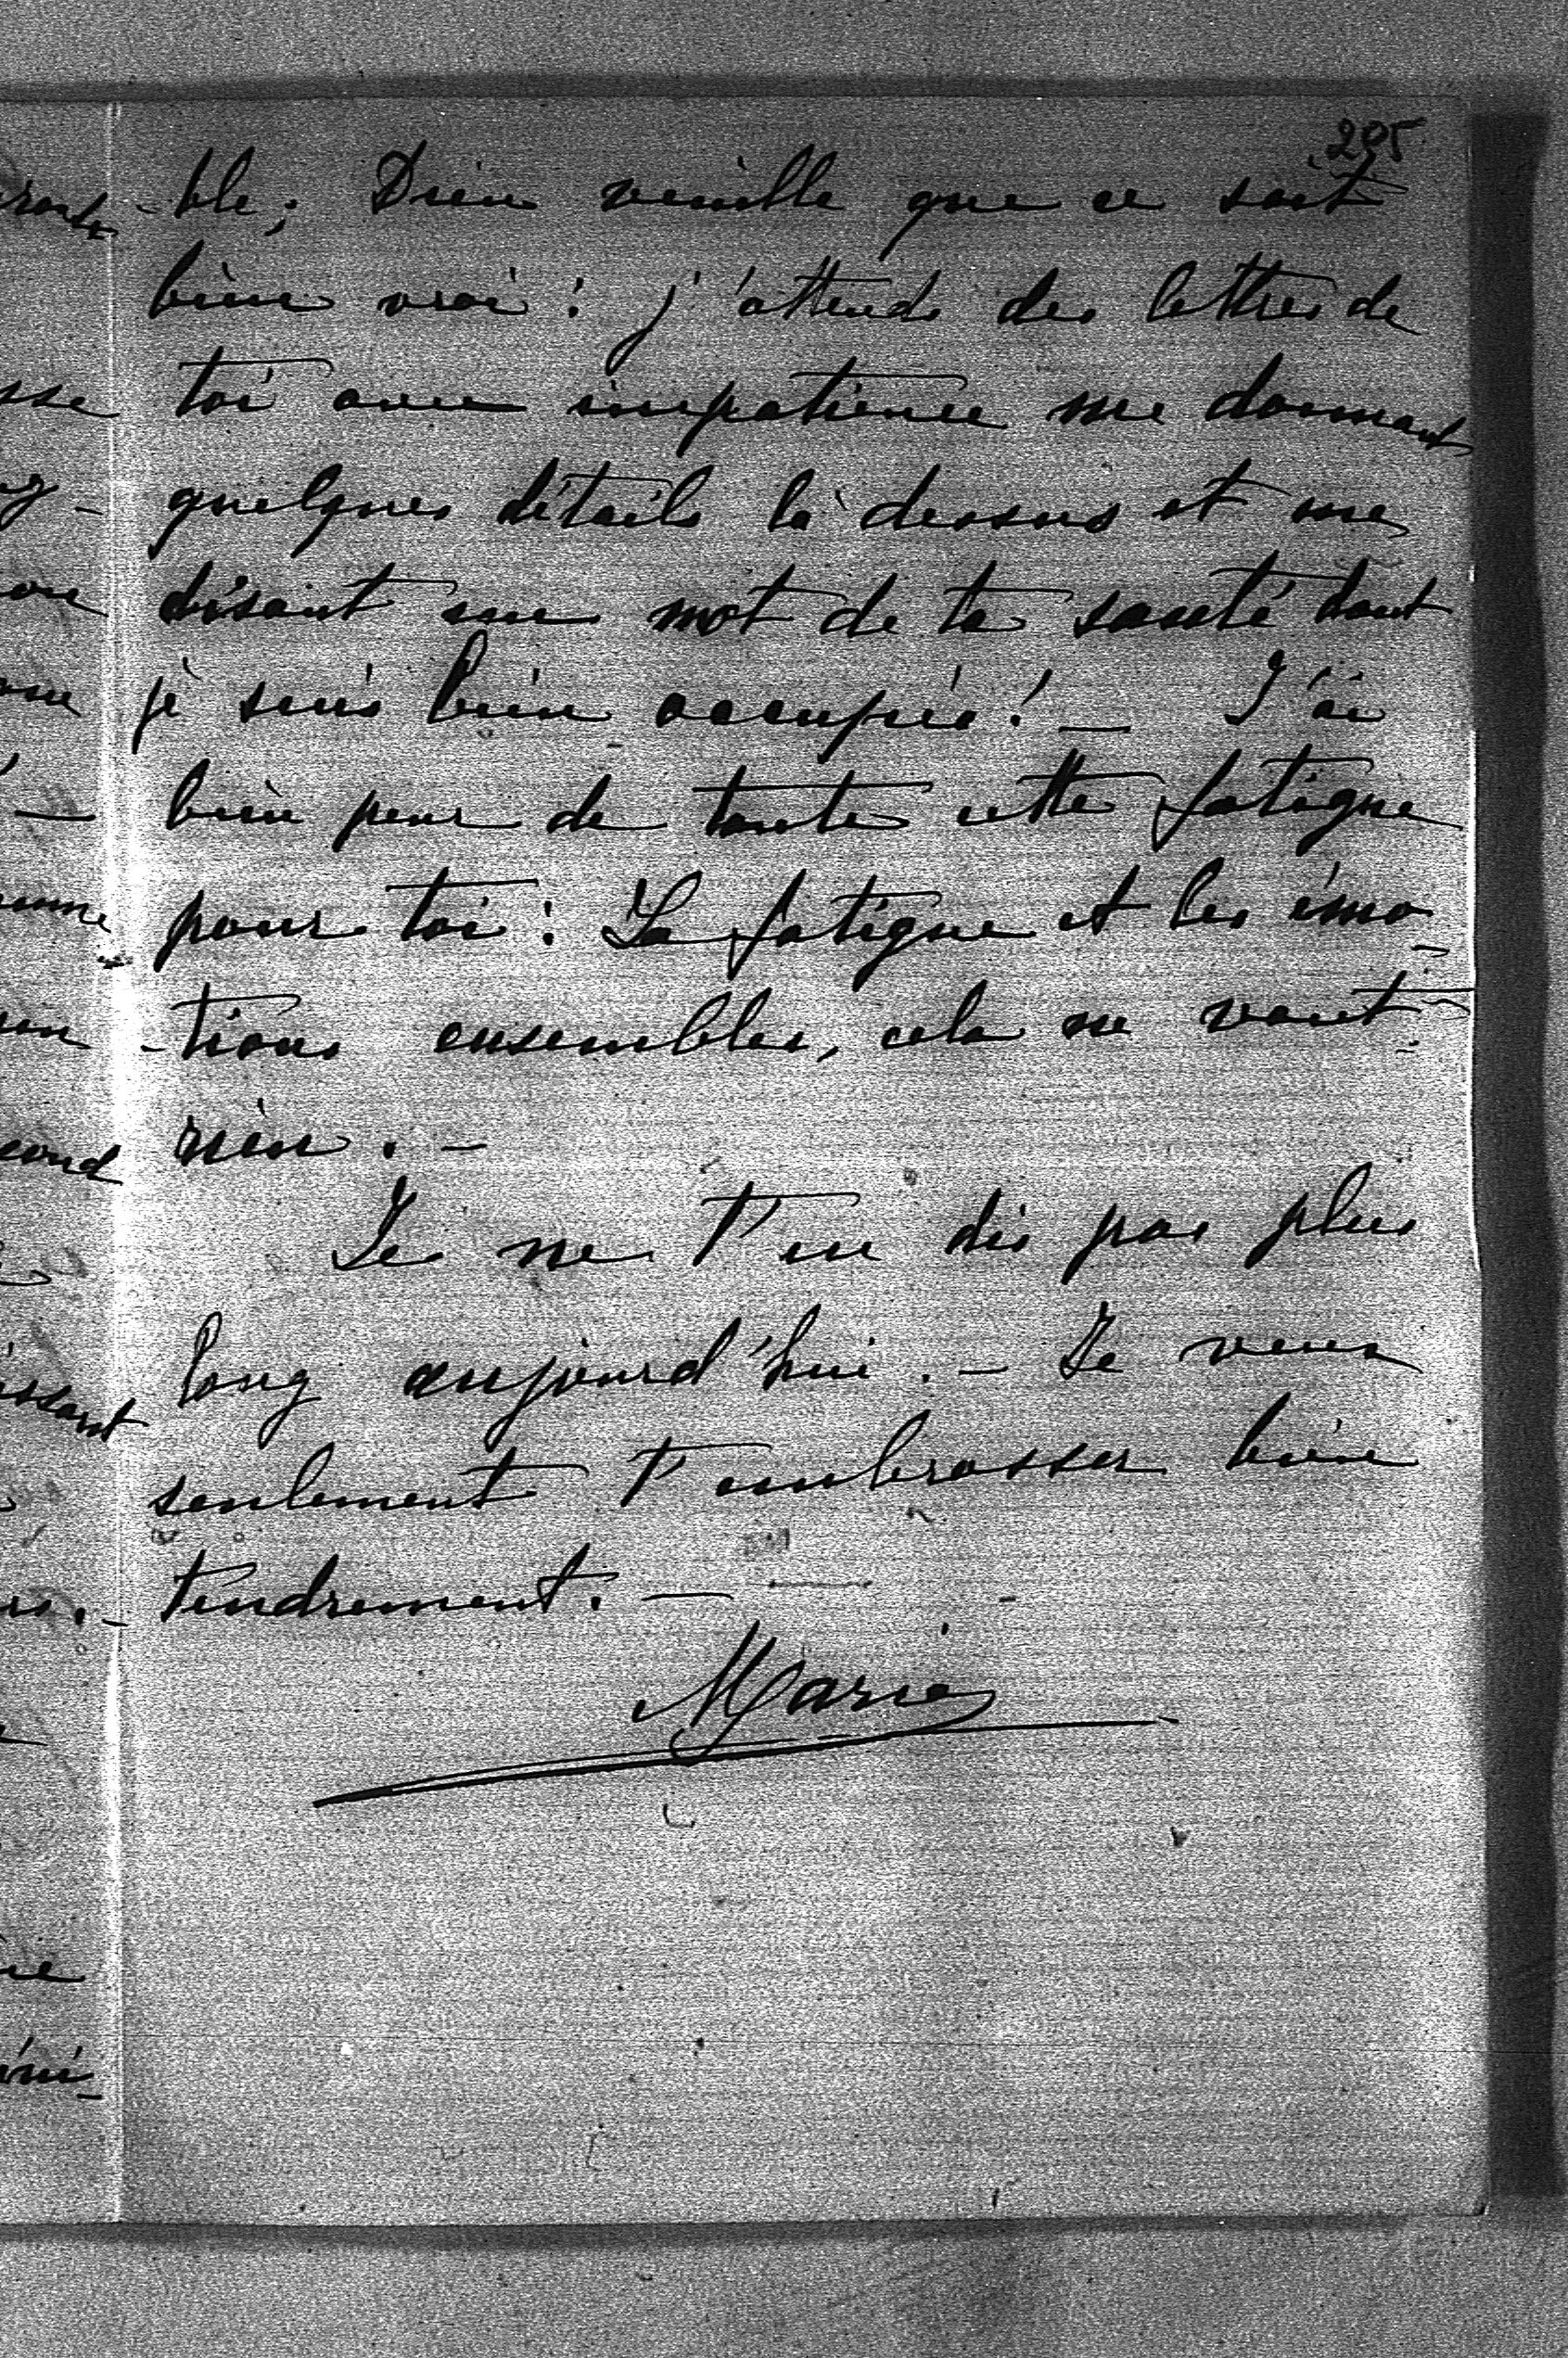 205
-ble; Dieu veuille que ce soit
bien vrai: j'attends des lettres de
toi avec impatience me donnant
quelques détails là dessus et me
disant un mot de ta santé dont
je suis bien occupée! _ J'ai
bien peur de toute cette fatigue
pour toi: La fatigue et les émo-
-tions ensembles, cela ne vaut
rien. -
Je ne t'en dis pas plus
long aujourd'hui. - Je veux
seulement t'embrasser bien
tendrement. -
Marie